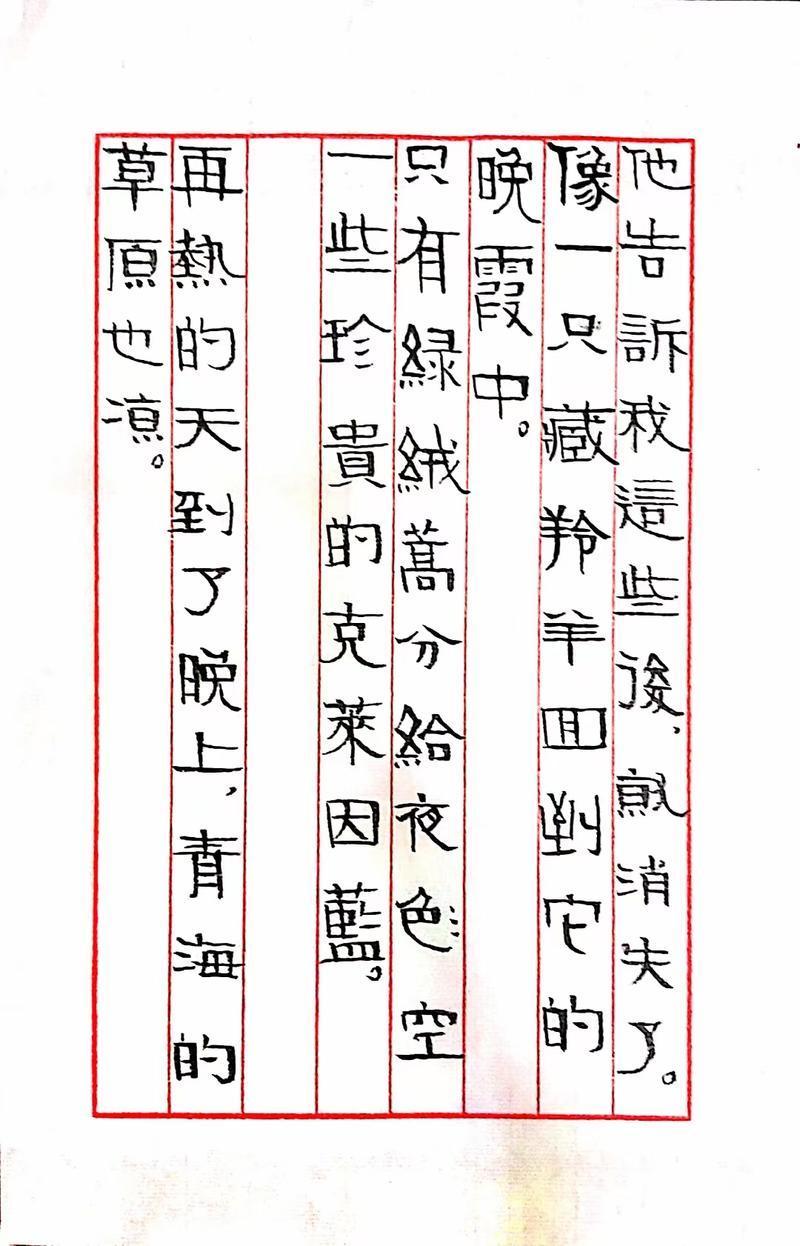 他告訴我這些後，就消失了。
像一只藏羚羊回到它的
晚霞中。
只有緑絨蒿分給夜色空
一些珍貴的克萊因藍。
再熱的天到了晚上，青海的
草原也涼。